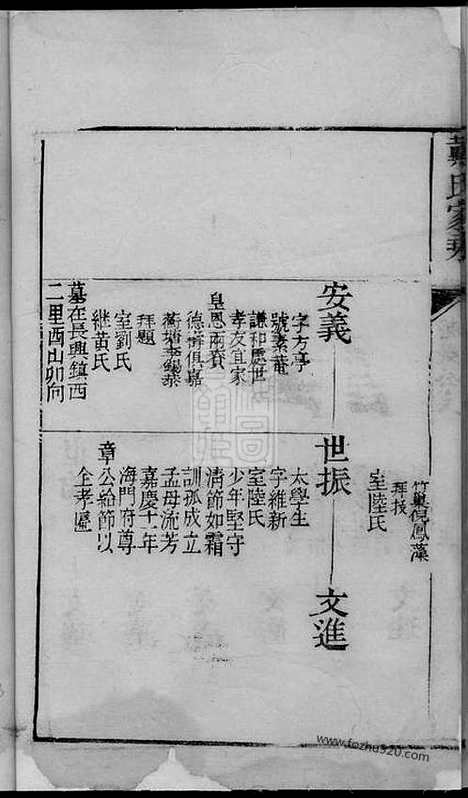 氏家
竹巢倪鳳藻
拜撰
室陸氏
安義
字方亭
號素菴
謙和處世
孝友宜家
皇恩兩賚
德壽俱嘉
拜題
室劉氏
繼黃氏
墓在長興鎮西
二里酉山卯向
世振
太學生
字維新
室陸氏
少年堅守
清節如霜
訓孤成立
孟母流芳
嘉慶十一年
海門府尊
章公給節以
全孝匾
文進
www.fozhu920.com